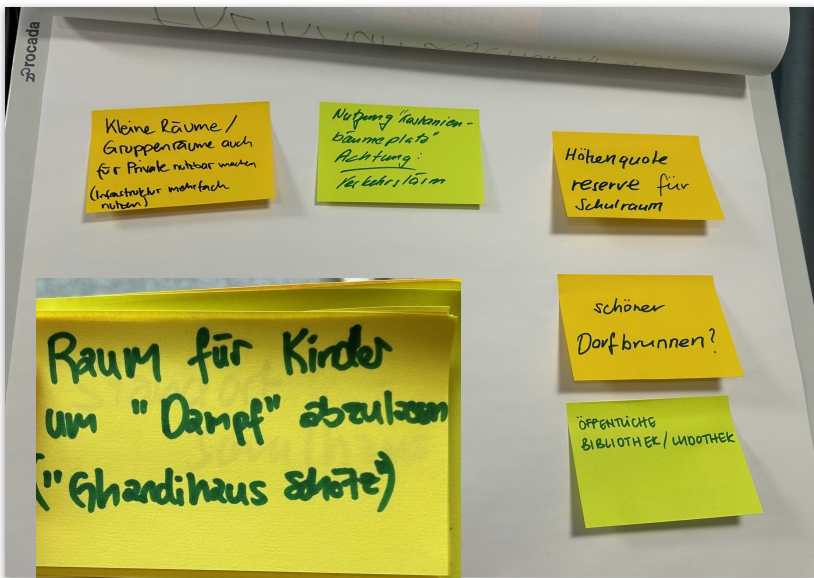 rocada
Kleine Räume /
Gruppenräume auch
für Private nutzbar machen
(Infrastruktur mehrfach
nutzen)
Nutzung "Kastanien-
bäumeplatz"
Achtung:
Verkehrslärm
Höhenquote
reserve für
Schulraum
schöner
Dorfbrunnen?
ÖFFENTLICHE
BIBLIOTHEK / LUDOTHEK
Raum für Kinder
um "Dampf" abzulassen
("Ghandihaus